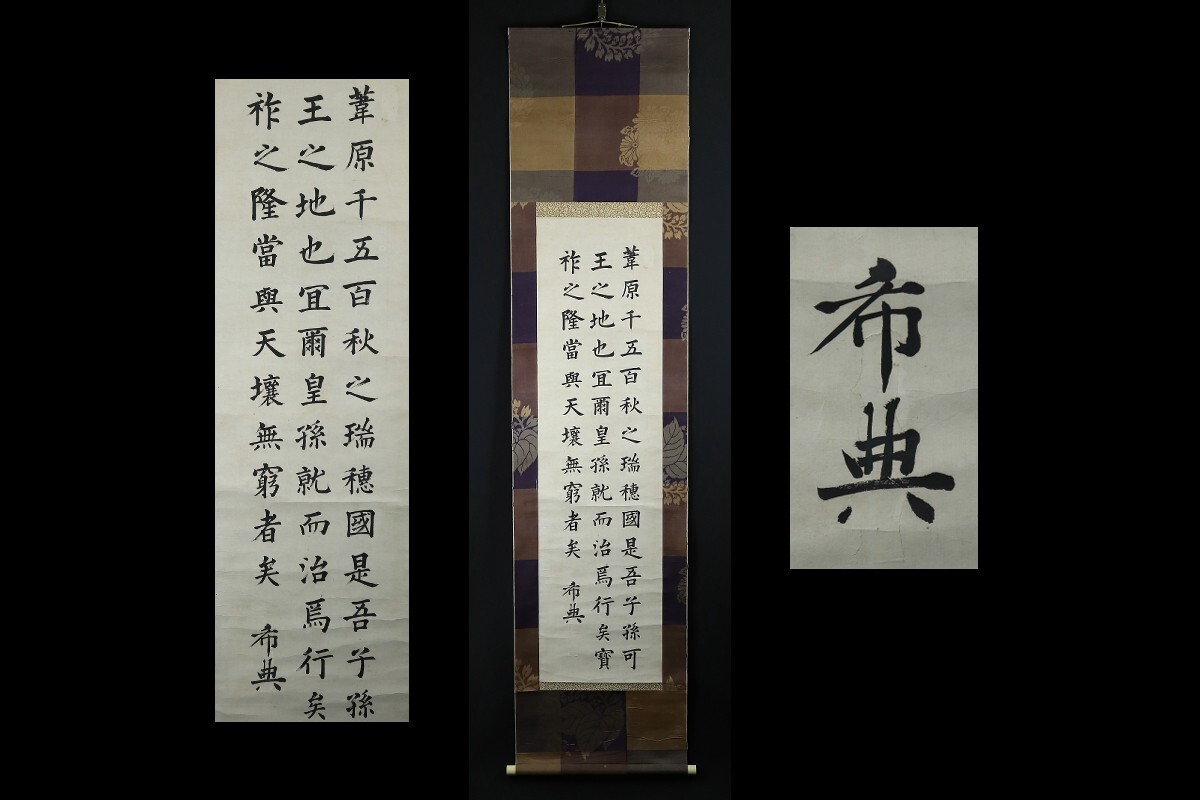 葦原千五百秋之瑞穗國是吾子孫
王之地也冝爾皇孫就而治焉行矣
祚之隆當與天壤無窮者矣 希典
葦原千五百秋之瑞穗國是吾子孫可
王之地也冝爾皇孫就而治焉行矣寶
祚之隆當與天壤無窮者矣 希典
希典